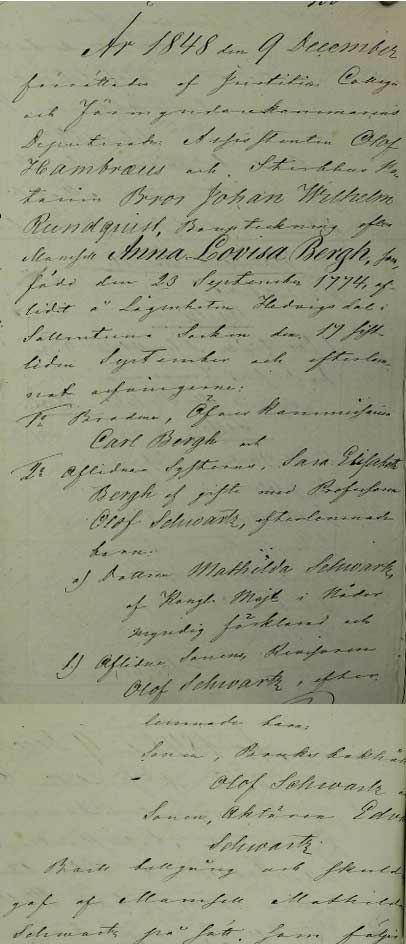 År 1848 den 9 December
förrättades af Justitiæ Collegii
och Förmyndarekammarens
Deputerade Assistenten Olof
Hambræus och Stärbhus No-
tarien Bror Johan Wilhelm
Rundquist, Bouppteckning efter
Mamsell Anna Lovisa Bergh, som
född den 23 September 1774, af-
lidit å Lägenheten Hedvigsdal i
Sollentuna Socken den 17 sist-
liden September och efterlem-
nat arfvingarne:
1o Brodren, Öfver Kommissarien
Carl Bergh och
2o Aflidna Systerns, Sara Elisabeth
Bergh gift med Professoren
Olof Schwartz, efterlemnade
barn:
a) Dottren Mathilda Schwartz,
af Kongl. Majt i Nåder
myndig förklarad och
b) Aflidne Sonens, Revisoren
Olof Schwartz, efter
lemnade barn:
Sonen, Bruksbokhål
Olof Schwartz
Sonen, Aktören Edv
Schwartz.
Boets tillgång och skuld
gaf af Mamsell Mathilda
Schwartz på sätt, som följer